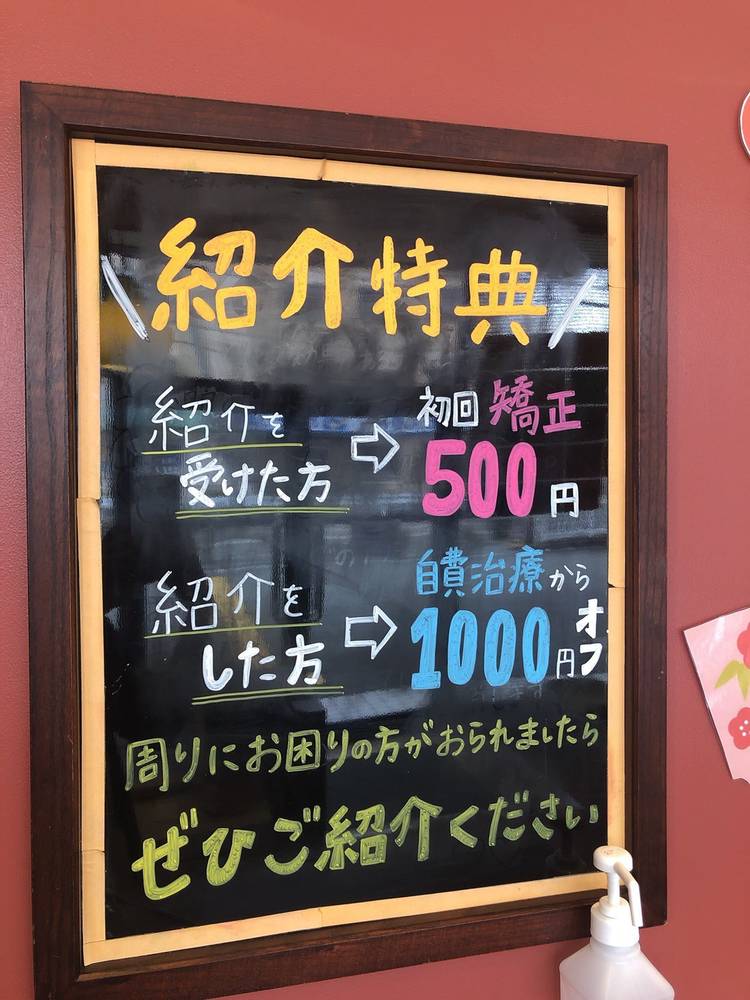 \紹介特典/
紹介を
受けた方
⇨
初回矯正
500円
紹介を
した方
⇨
自費治療から
1000円オフ
周りにお困りの方がおられましたら
ぜひご紹介ください